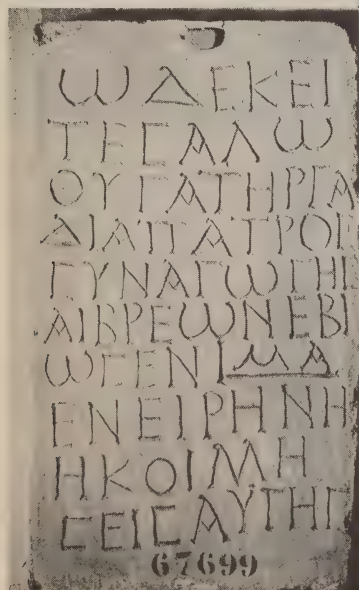 ΩΔΕΚΕΙ
ΤΕΣΑΛΩ
ΘΥΓΑΤΗΡΓΑ
ΔΙΑΠΑΤΡΟΣ
ΣΥΝΑΓΩΓΗΣ
ΑΙΒΡΕΩΝΕΒΙ
ΩΣΕΝΙΜΑ
ΕΝΕΙΡΗΝΗ
ΗΚΟΙΜΗ
ΣΕΙΣΑΥΤΗΣ
67699